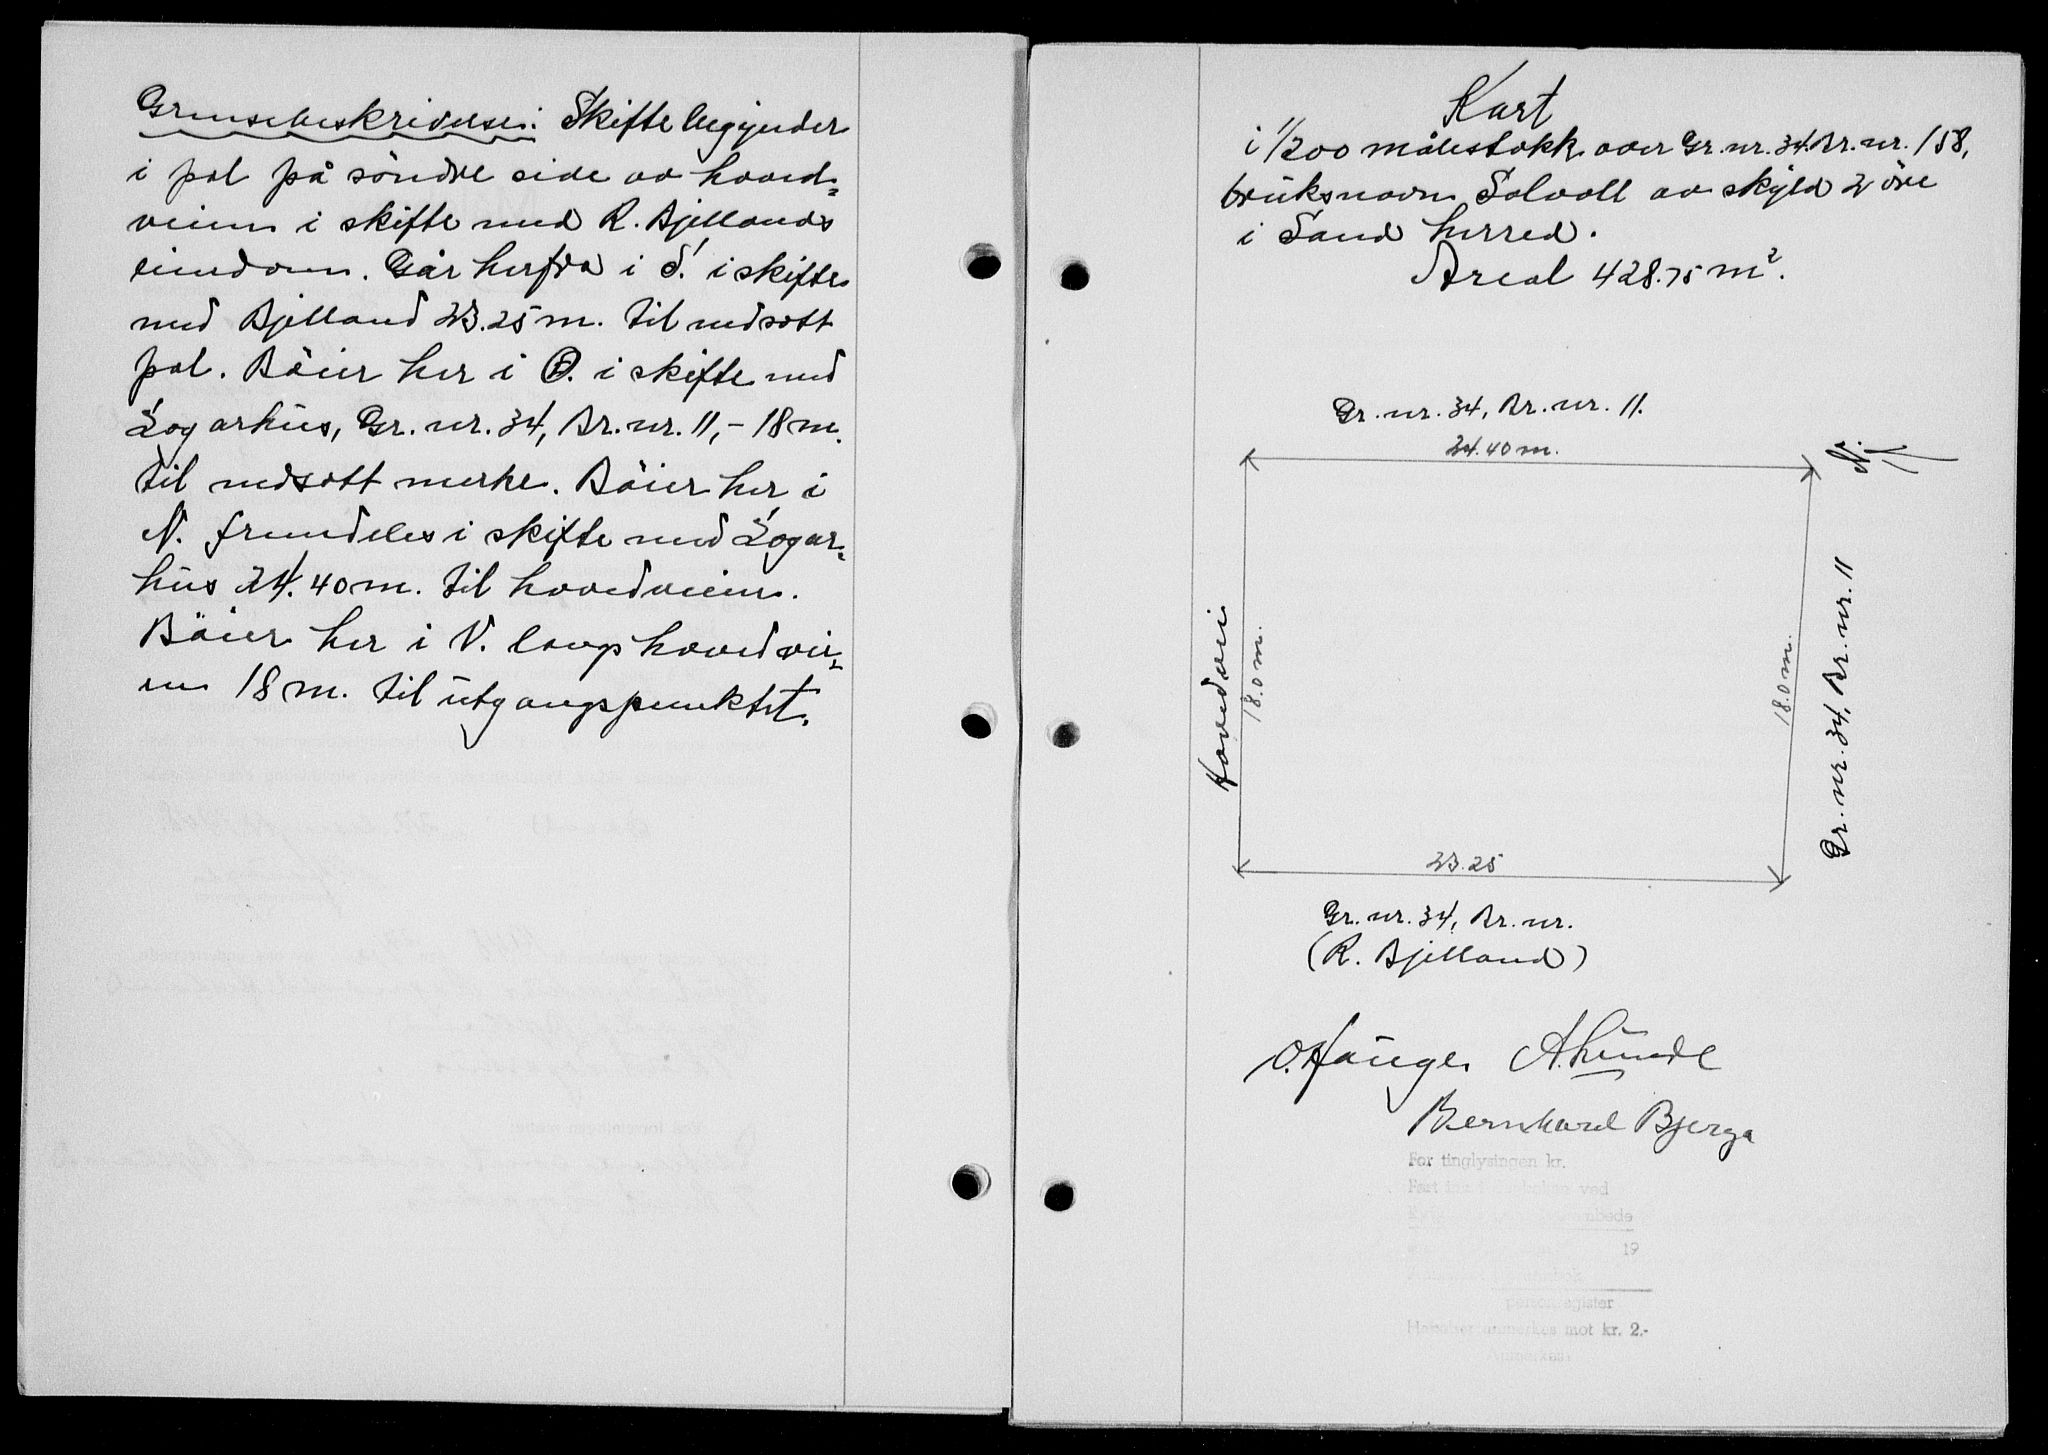 Grensebeskrivelse: Skifte begynder
i pel på söndre side av hoved=
veien i skifte med R. Bjellands
eiendom. Går herfra i S. i skifte
med Bjelland 23.25 m. til nedsatt
pel. Böier her i Ø. i skifte med
Logarhus, Gr. nr. 34, Br. nr. 11,- 18 m.
til nedsatt merke. Böier her i
N. fremdeles i skifte med Logar=
hus 24.40 m. til hovedveien.
Böier her i V. langs hovedvei=
en 18 m. til utgangspunktet.
Kart
i 1/200 målestokk over Gr. nr. 34. Br. nr. 158,
bruksnavn Solvoll av skyld 2 öre
i Sand herred.
Areal 428.75 m².
Gr. nr. 34, Br. nr. 11.
24.40 m.
N.
Hovedvei
18.0 m.
18.0 m.
Gr. nr. 34, Br. nr. 11
23.25
Gr. nr. 34, Br. nr.
(R. Bjelland)
O. Hauge. A. Lunde
Bernhard Bjerga
For tinglysingen kr.
Ført inn i dagboken ved
embede
19
personregister
Herefter anmerkes mot kr. 2.-
Anmerkes: